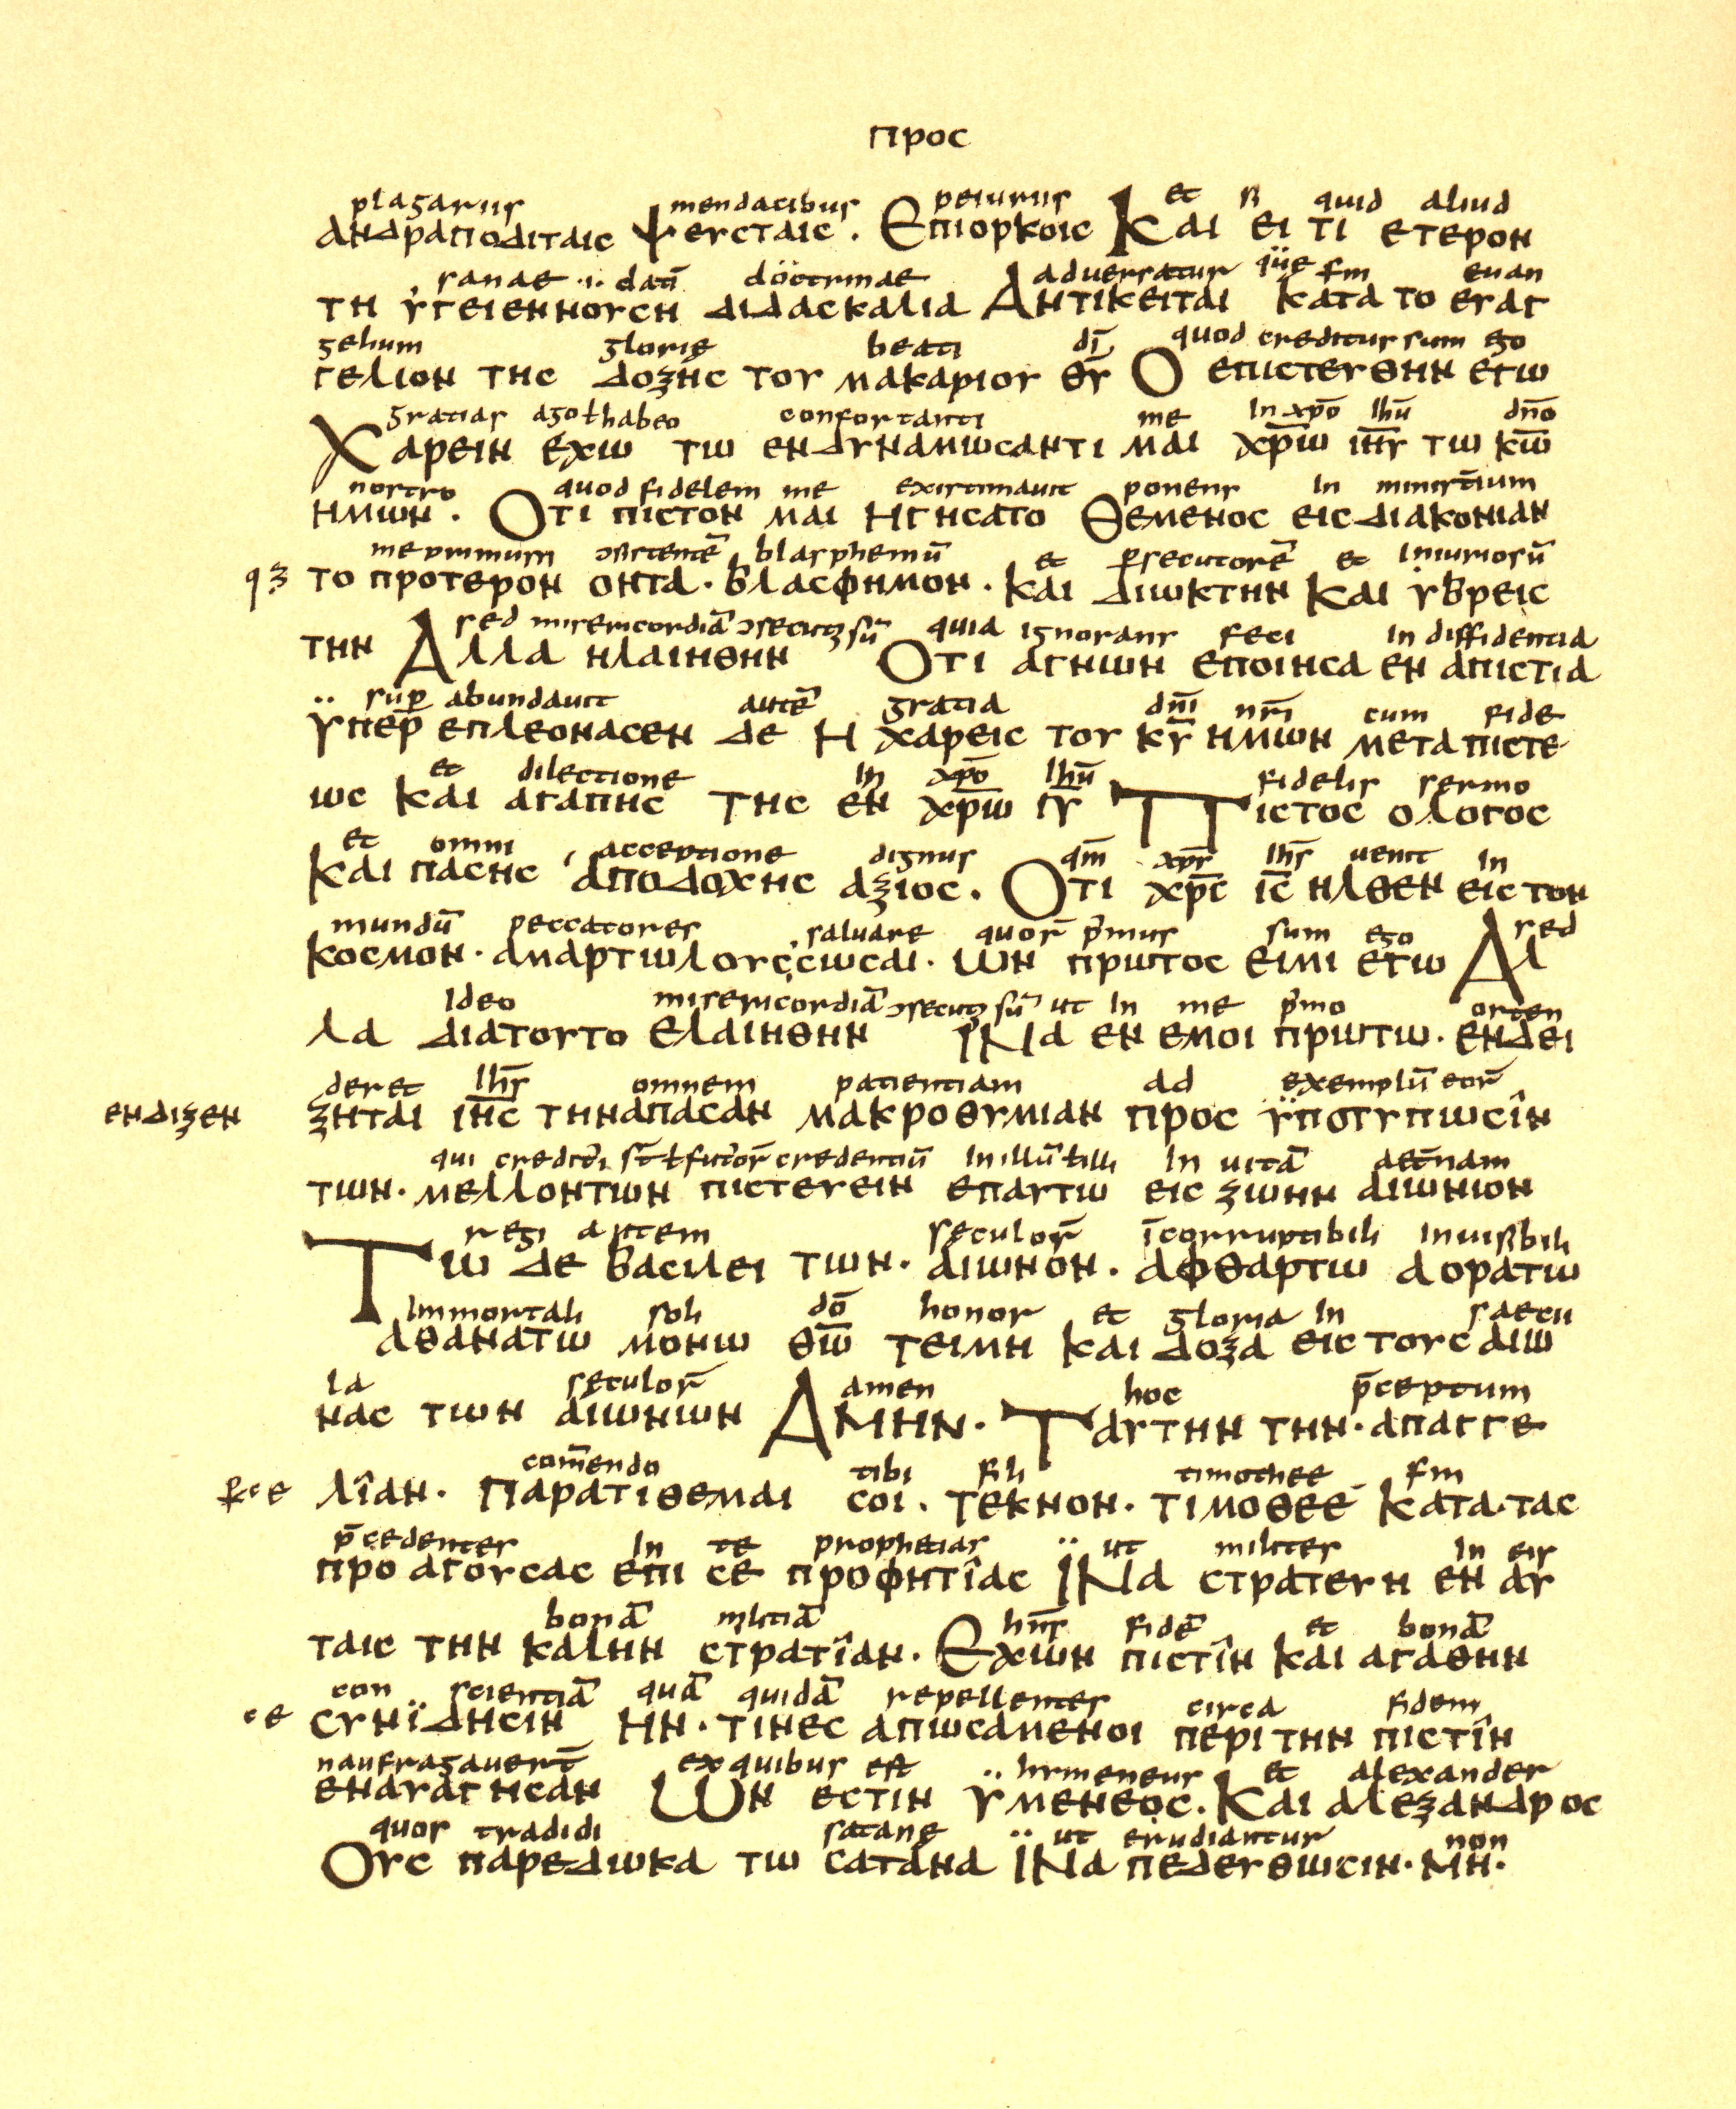 προς
plagariis mendacibus peiuriis et si quid aliud
ανδραποδιταις ψευσταις . Επιορκοις Και ει τι ετερον
sanae .i. datī doctrinae aduersatur que s̄m euan
τη υγειεννουση διδασκαλια Αντικειται κατα το ευαγ
gelium glorię beati dī quod creditur sum ego
γελιον της δοξης του μακαριου θ̄υ Ο επιστευθην εγω
gratias ago ł habeo confortanti me in xp̄o ihū dn̄o
Χαρειν εχω τω ενδυναμωσαντι μαι χρ̄ω ιη̄υ τω κ̄ω
nostro quod fidelem me existimauit ponens in minist̄ium
ημων . Οτι πιστον μαι ηγησατο Θεμενος εις διακονιαν
me primum ɔsistentē blasphemū et p̄secutorē et iniuriosū
qз το προτερον οντα . βλασφημον . και διωκτην και υβρεις
sed misericordiā ɔsecutꝫ sū quia ignorans feci in diffidentia
την Αλλα ηλαιηθην Οτι αγνωων εποιησα εν απιστια
sup̄ abundauit autē gratia dn̄i nr̄i cum fide
υπερ επλεονασεν δε Η χαρεις του κ̄υ ημων μετα πιστε
et dilectione in xp̄o ihū fidelis sermo
ως και αγαπης της εν χρ̄ω ῑυ Πιστος ολογος
et omni acceptione dignus qm̄ xp̄s ihs̄ uenit in
και πασης αποδοχης αξιος . Οτι χρ̄ς ῑς ηλθεν εις τον
mundū peccatores saluare quor̄ p̄mus sum ego sed
κοσμον . αμαρτωλους σωσαι . ων πρωτος ειμι εγω Αλ
ideo misericordiā ɔsecutꝫ sū ut in me p̄mo osten
λα διατουτο ελαιηθην ϊΝα εν εμοι πρωτω . ενδει
deret ihs̄ omnem patientiam ad exemplū eor̄
ενδιξεν ξηται ιη̄ς την απασαν μακροθυμιαν προς ϋποτυπωσιν
qui credit̄i s̄t ł futuror̄ credentiū in illū ł illi in uitā aet̄nam
των . μελλοντων πιστευειν επαυτω εις ζωην αιωνιον
regi autem seculor̄ īcorruptibili inuisibili
Τω δε βασιλει των . αιωνον . αφθαρτω αορατω
immortali soli dō honor et gloria in saecu
αθανατω μονω θ̄ω τειμη και δοξα εις τους αιω
la seculor̄ amen hoc p̄ceptum
νας των αιωνιων ΑΜΗΝ . Ταυτην την . απαγγε
com̄endo tibi fili timothee s̄m
λιαν . Παρατιθεμαι σοι . τεκνον . τιμοθεε κατα . τας
p̄cedentes in te prophetias ut milites in eis
προ αγουσας επι σε προφητιας ϊΝα στρατευη εν αυ
bonā militiā hn̄s fidē et bonā
ταις την καλην στρατιαν . Εχων πιστιν και αγαθην
con scientiā quā quidā repellentes circa fidem
ςε συνϊδησιν ΗΝ . τινες απωσαμενοι περι την πιστιν
naufragauer̄t ex quibus est hymeneus et alexander
εναυαγησαν Ων εστιν υμενεος . Και αλεξανδρος
quos tradidi satanę ut erudiantur non
Ους παρεδωκα τω σατανα ϊΝα πεδευθωσιν . ΜΗ .